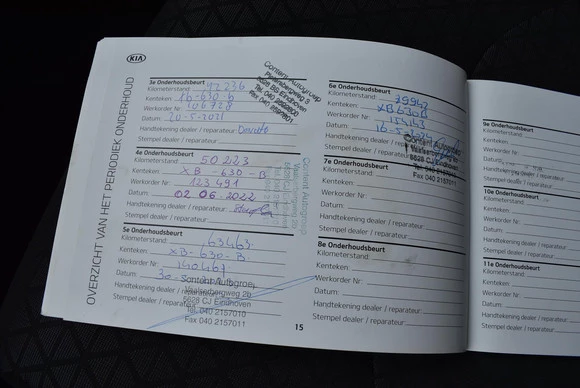 KIA
OVERZICHT VAN HET PERIODIEK ONDERHOUD
3e Onderhoudsbeurt
Kilometerstand:
Kenteken:
Werkorder Nr:
Datum: 20-5-2021
Handtekening dealer / reparateur:
Stempel dealer / reparateur:
5628 BS Eindhoven
4e Onderhoudsbeurt
Kilometerstand: 50223
Kenteken: XB-630-B
Werkorder Nr: 123491
Datum: 02.06.2022
Handtekening dealer / reparateur:
Stempel dealer / reparateur:
5e Onderhoudsbeurt
Kilometerstand: 63463
Kenteken: XB-630-B
Werkorder Nr: 140467
Datum: 30-
Handtekening dealer / reparateur:
Stempel dealer / reparateur:
Content Autogroep
5628 CJ Eindhoven
Tel. 040 2157010
Fax 040 2157011
15
6e Onderhoudsbeurt
Kilometerstand: 79942
Kenteken: XB630B
Werkorder Nr:
Datum:
Handtekening dealer / reparateur:
Stempel dealer / reparateur:
Content Autogroep
5628 CJ Eindhoven
Tel. 040 2157010
Fax 040 2157011
7e Onderhoudsbeurt
Kilometerstand:
Kenteken:
Werkorder Nr:
Datum:
Handtekening dealer / reparateur:
Stempel dealer / reparateur:
8e Onderhoudsbeurt
Kilometerstand:
Kenteken:
Werkorder Nr:
Datum:
Handtekening dealer / reparateur:
Stempel dealer / reparateur:
9e Onderhoudsbeurt
Kilometerstand:
Kenteken:
Werkorder Nr:
Datum:
Handtekening dealer / reparateur:
Stempel dealer / reparateur:
10e Onderhoudsbeurt
Kilometerstand:
Kenteken:
Werkorder Nr:
Datum:
Handtekening dealer / reparateur:
Stempel dealer / reparateur:
11e Onderhoudsbeurt
Kilometerstand:
Kenteken:
Werkorder Nr:
Datum:
Handtekening dealer / reparateur:
Stempel dealer / reparateur: